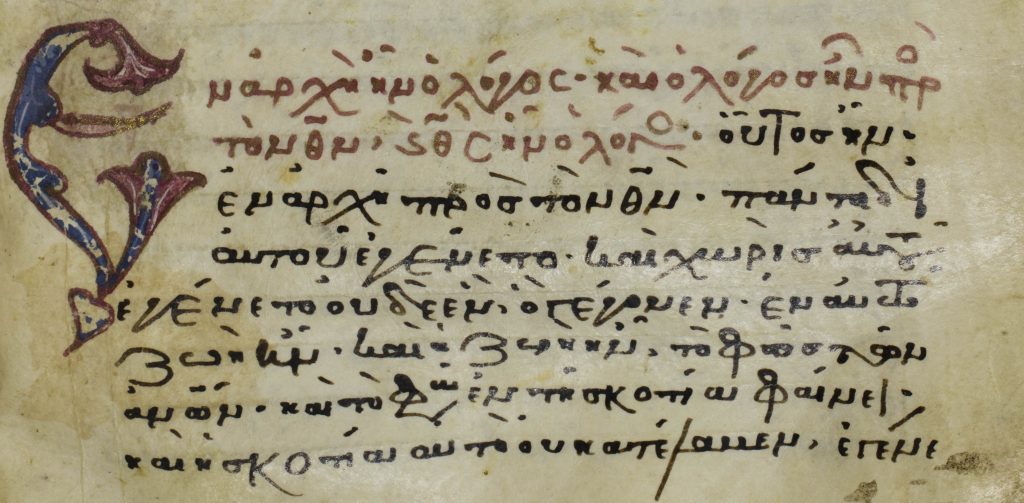 Ἐν ἀρχῇ ἦν ὁ λόγος· καὶ ὁ λόγος ἦν πρ
τὸν θν· κ θς ἦν ὁ λόγος· οὗτος ἦν·
ἐν ἀρχῇ πρὸς τὸν θν· πάντα δι
αὐτοῦ ἐγένετο· καὶ χωρὶς αὐτοῦ
ἐγένετο οὐδὲ ἕν, ὃ γέγονεν· ἐν αὐτῶ
ζωὴ ἦν· καὶ ἡ ζωὴ ἦν, τὸ φῶς τῶν
ανων· καὶ τὸ φῶς ἐν τῇ σκοτία φαίνει·
καὶ ἡ σκοτία αὐτὸ οὐ κατέλαβεν, ἐγένε